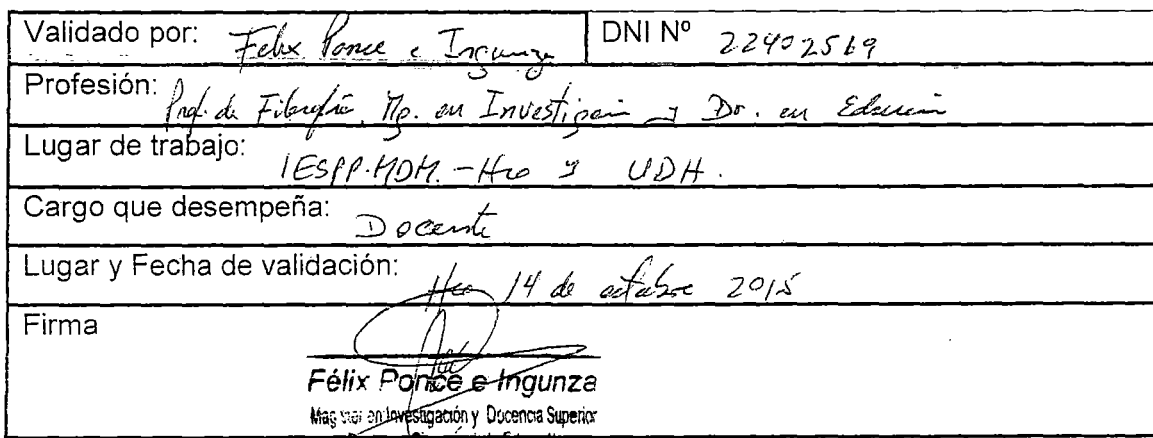 Validado por: Felix Ponce e Ingunza DNI Nº 22402569
Profesión: Prof. de Filosofía, Mg. en Investigación y Dr. en Educación
Lugar de trabajo: IESPP.MDM.-Hco y UDH.
Cargo que desempeña: Docente
Lugar y Fecha de validación: Hco 14 de octubre 2015
Firma
Félix Ponce e Ingunza
Magister en Investigación y Docencia Superior